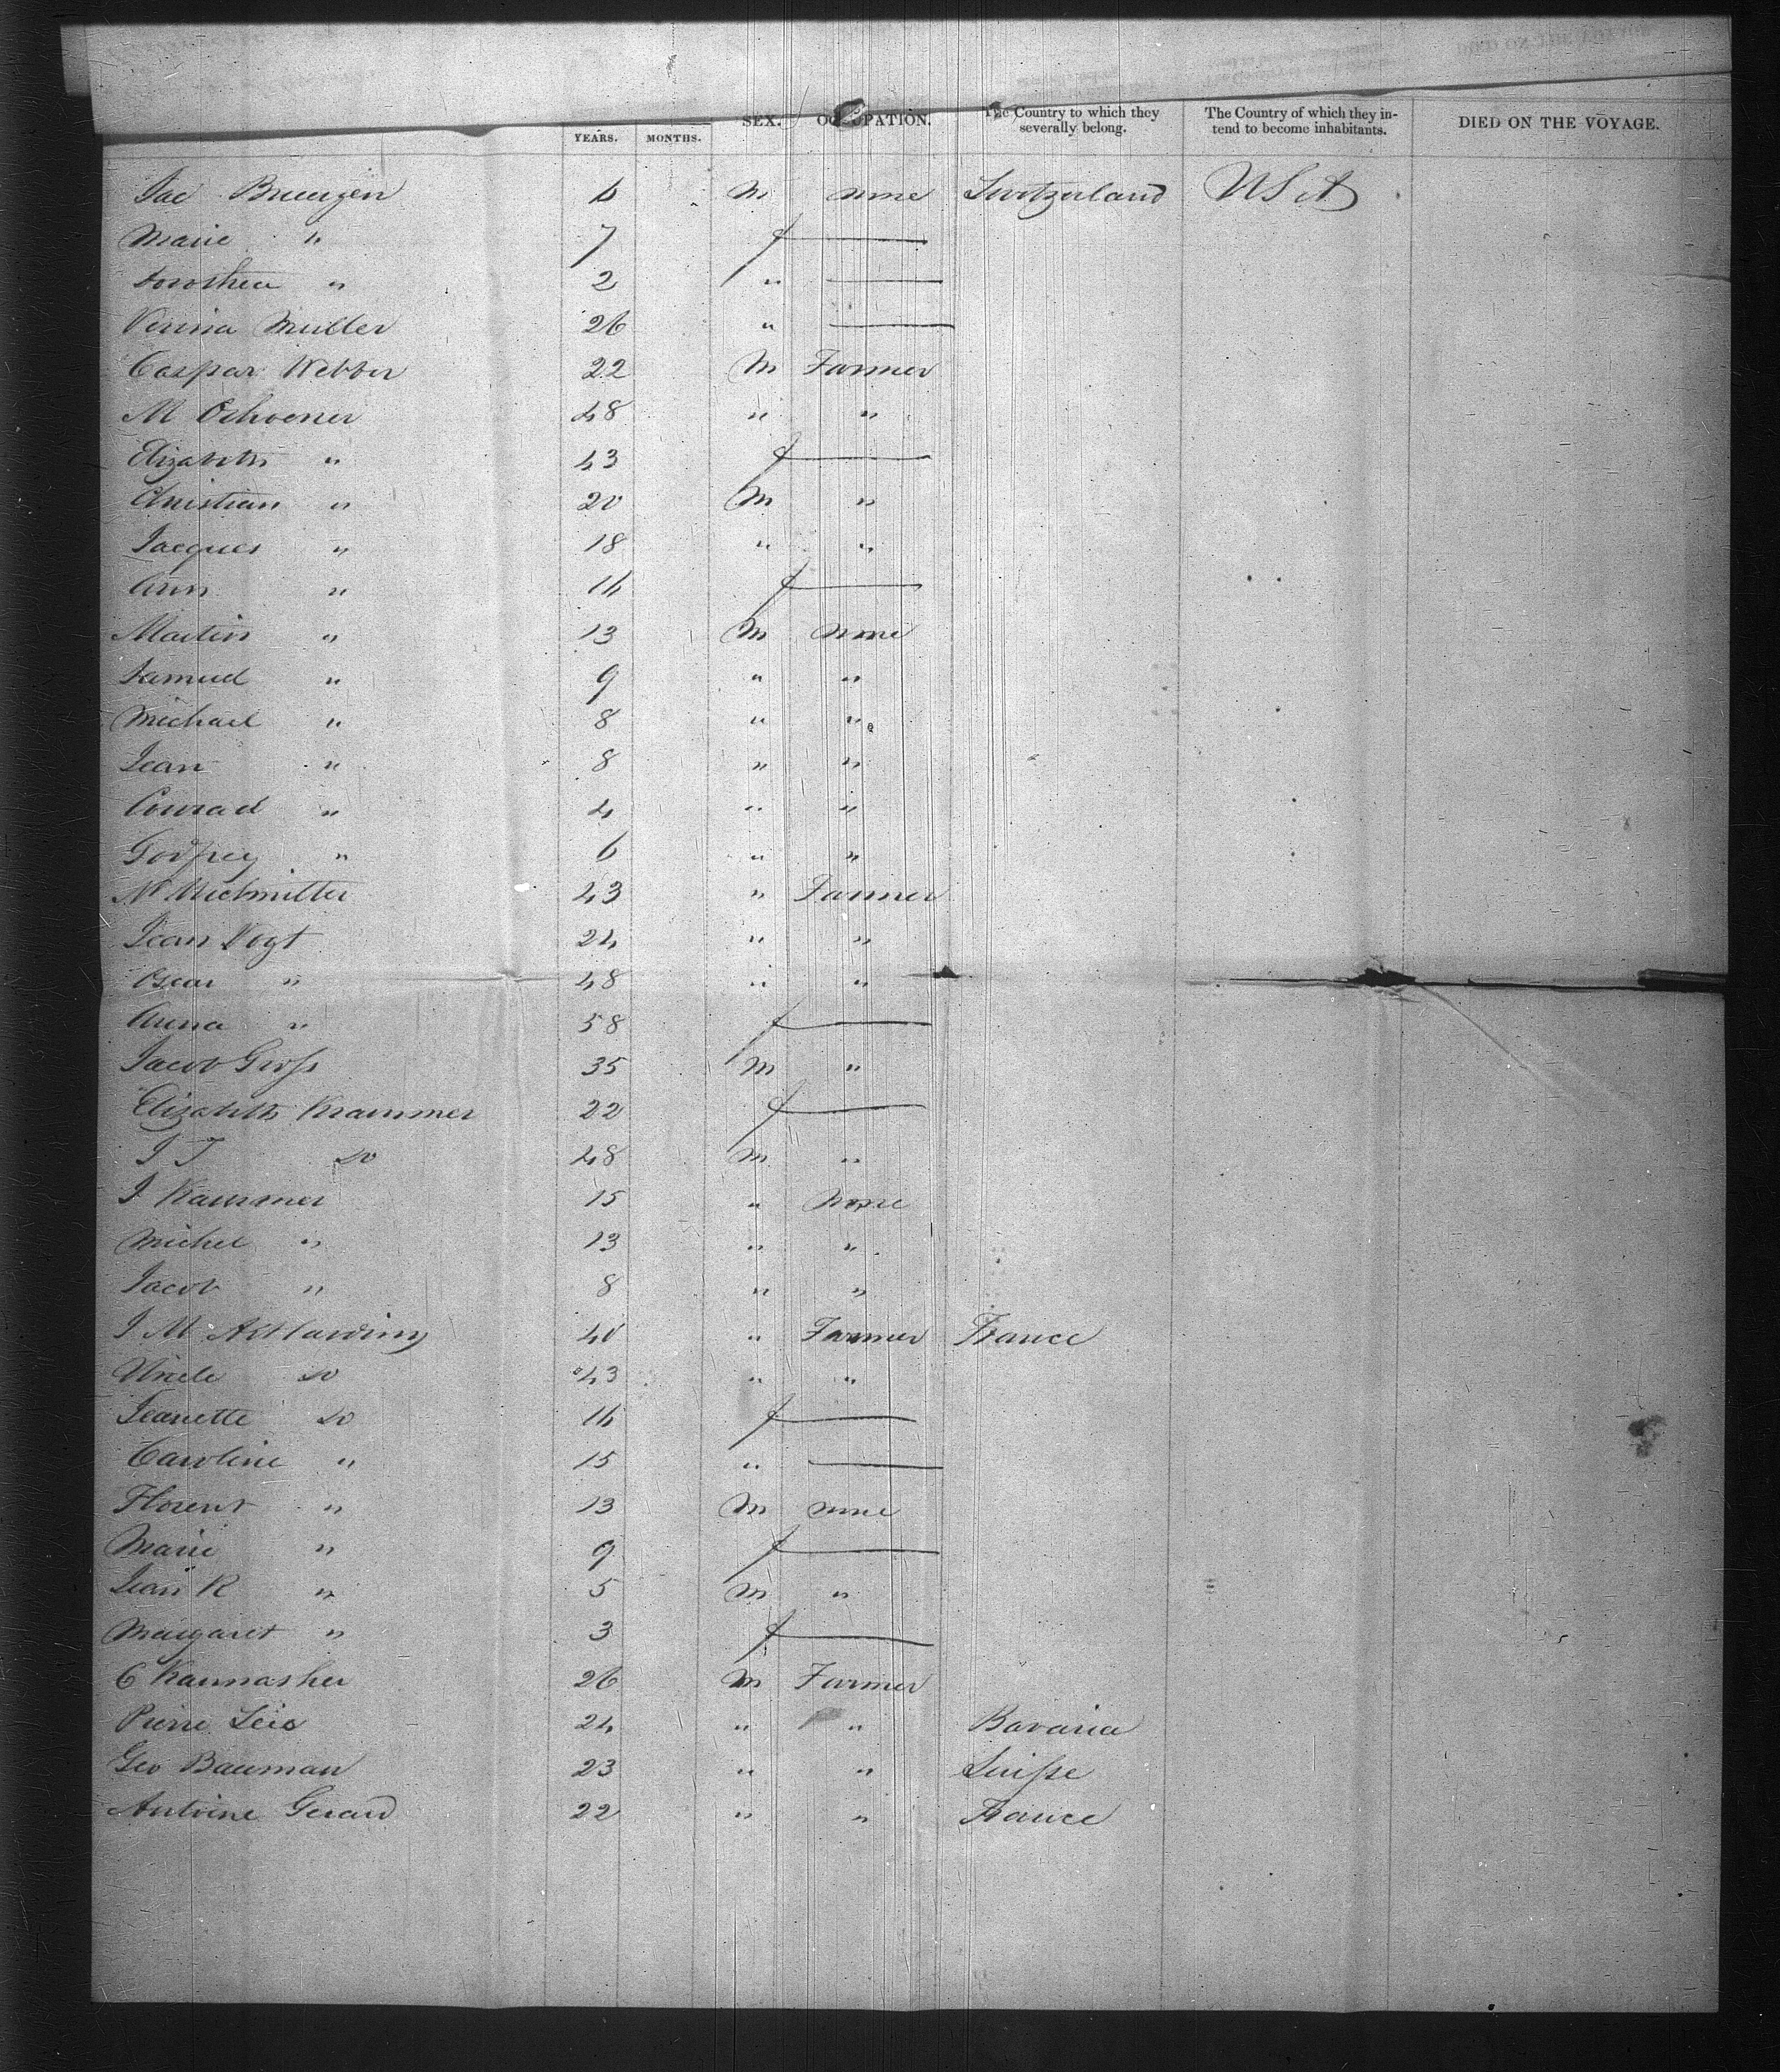 YEARS. MONTHS. SEX. OCCUPATION. The Country to which they severally belong. The Country of which they intend to become inhabitants. DIED ON THE VOYAGE.
Jac 6 M none Switzerland USA
Marie " 7 f
Dorothea " 2 "
Verina Muller 26 "
Caspar Webber 22 M Farmer
M Ochoener 48 " "
Elizabeth " 43 f
Christian " 20 M "
Jacques " 18 " "
Ann " 14 f
Martin " 13 M none
Samuel " 9 " "
Michael " 8 " "
Jean " 8 " "
Conrad " 4 " "
Godfrey " 6 " "
43 " Farmer
Jean Vogt 24 " "
Oscar " 48 " "
Anna " 58 f
Jacob Groſs 35 M "
Elizabeth Krammer 22 f
J J do 48 M "
J Kammer 15 " none
Michel " 13 " "
Jacob " 8 " "
J M 40 " Farmer France
do 43 " "
Jeanette do 14 f
Caroline " 15 "
Florent " 13 M none
Marie " 9 f
Jean R " 5 M "
Margaret " 3 f
C Kaumasher 26 M Farmer
Pierre Leis 24 " " Bavaria
Geo Bauman 23 " " Suiſse
Antoine Gerard 22 " " France